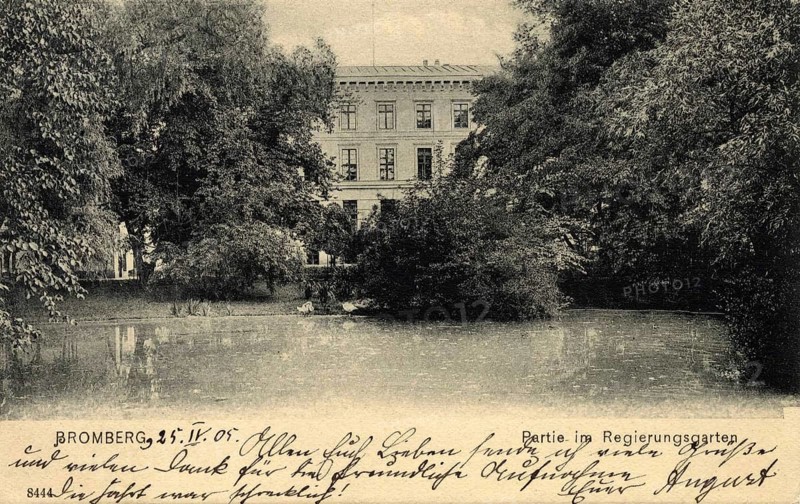 PHOTO12
PHOTO12
BROMBERG, 25. IV. 05. Allen Euch Lieben sende ich viele Grüße
Partie im Regierungsgarten
und vielen Dank für die freundliche Aufnahme
Euer August
8444 Die Fahrt war schrecklich!